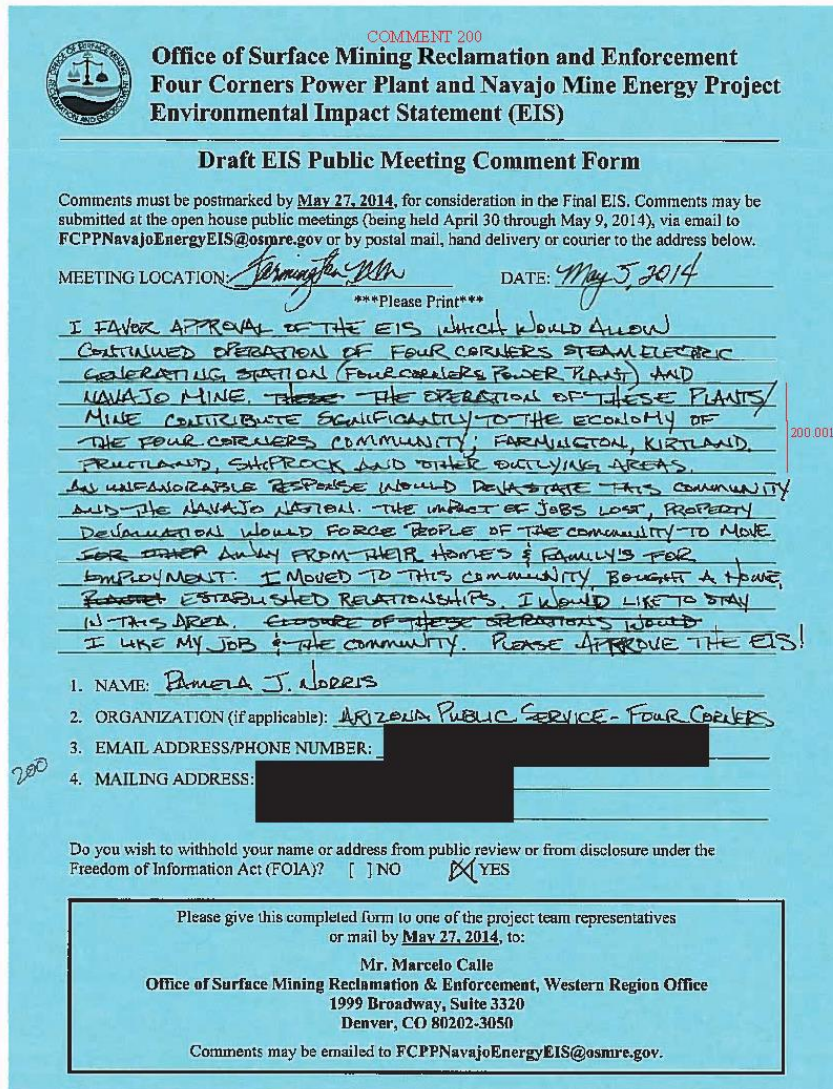 COMMENT 200
Office of Surface Mining Reclamation and Enforcement
Four Corners Power Plant and Navajo Mine Energy Project
Environmental Impact Statement (EIS)
Draft EIS Public Meeting Comment Form
Comments must be postmarked by May 27, 2014, for consideration in the Final EIS. Comments may be
submitted at the open house public meetings (being held April 30 through May 9, 2014), via email to
FCPPNavajoEnergyEIS@osmre.gov or by postal mail, hand delivery or courier to the address below.
MEETING LOCATION: Farmington NM DATE: May 5, 2014
***Please Print***
I FAVOR APPROVAL OF THE EIS WHICH WOULD ALLOW
CONTINUED OPERATION OF FOUR CORNERS STEAM ELECTRIC
GENERATING STATION (FOUR CORNERS POWER PLANT) AND
NAVAJO MINE. THESE THE OPERATION OF THESE PLANTS/
MINE CONTRIBUTE SIGNIFICANTLY TO THE ECONOMY OF
THE FOUR CORNERS COMMUNITY; FARMINGTON, KIRTLAND,
FRUITLAND, SHIPROCK AND OTHER OUTLYING AREAS.
200.001
AN UNFAVORABLE RESPONSE WOULD DEVASTATE THIS COMMUNITY
AND THE NAVAJO NATION. THE IMPACT OF JOBS LOST, PROPERTY
DEVALUATION WOULD FORCE PEOPLE OF THE COMMUNITY TO MOVE
FOR OTHER AWAY FROM THEIR HOMES & FAMILY'S FOR
EMPLOYMENT. I MOVED TO THIS COMMUNITY, BOUGHT A HOME,
ESTABLISHED RELATIONSHIPS. I WOULD LIKE TO STAY
IN THIS AREA. CLOSURE OF THESE OPERATIONS WOULD
I LIKE MY JOB & THE COMMUNITY. PLEASE APPROVE THE EIS!
1. NAME: PAMELA J. NORRIS
2. ORGANIZATION (if applicable): ARIZONA PUBLIC SERVICE - FOUR CORNERS
3. EMAIL ADDRESS/PHONE NUMBER:
200
4. MAILING ADDRESS:
Do you wish to withhold your name or address from public review or from disclosure under the
Freedom of Information Act (FOIA)? [ ] NO [X] YES
Please give this completed form to one of the project team representatives
or mail by May 27, 2014, to:
Mr. Marcelo Calle
Office of Surface Mining Reclamation & Enforcement, Western Region Office
1999 Broadway, Suite 3320
Denver, CO 80202-3050
Comments may be emailed to FCPPNavajoEnergyEIS@osmre.gov.